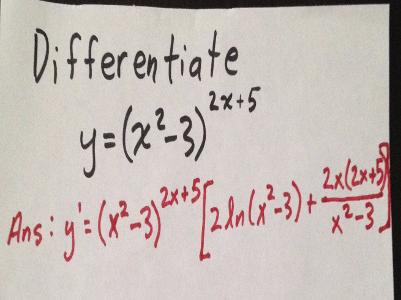 Differentiate
y=(x²-3)²ˣ⁺⁵
Ans: y'=(x²-3)²ˣ⁺⁵[2ln(x²-3)+2x(2x+5)/x²-3]